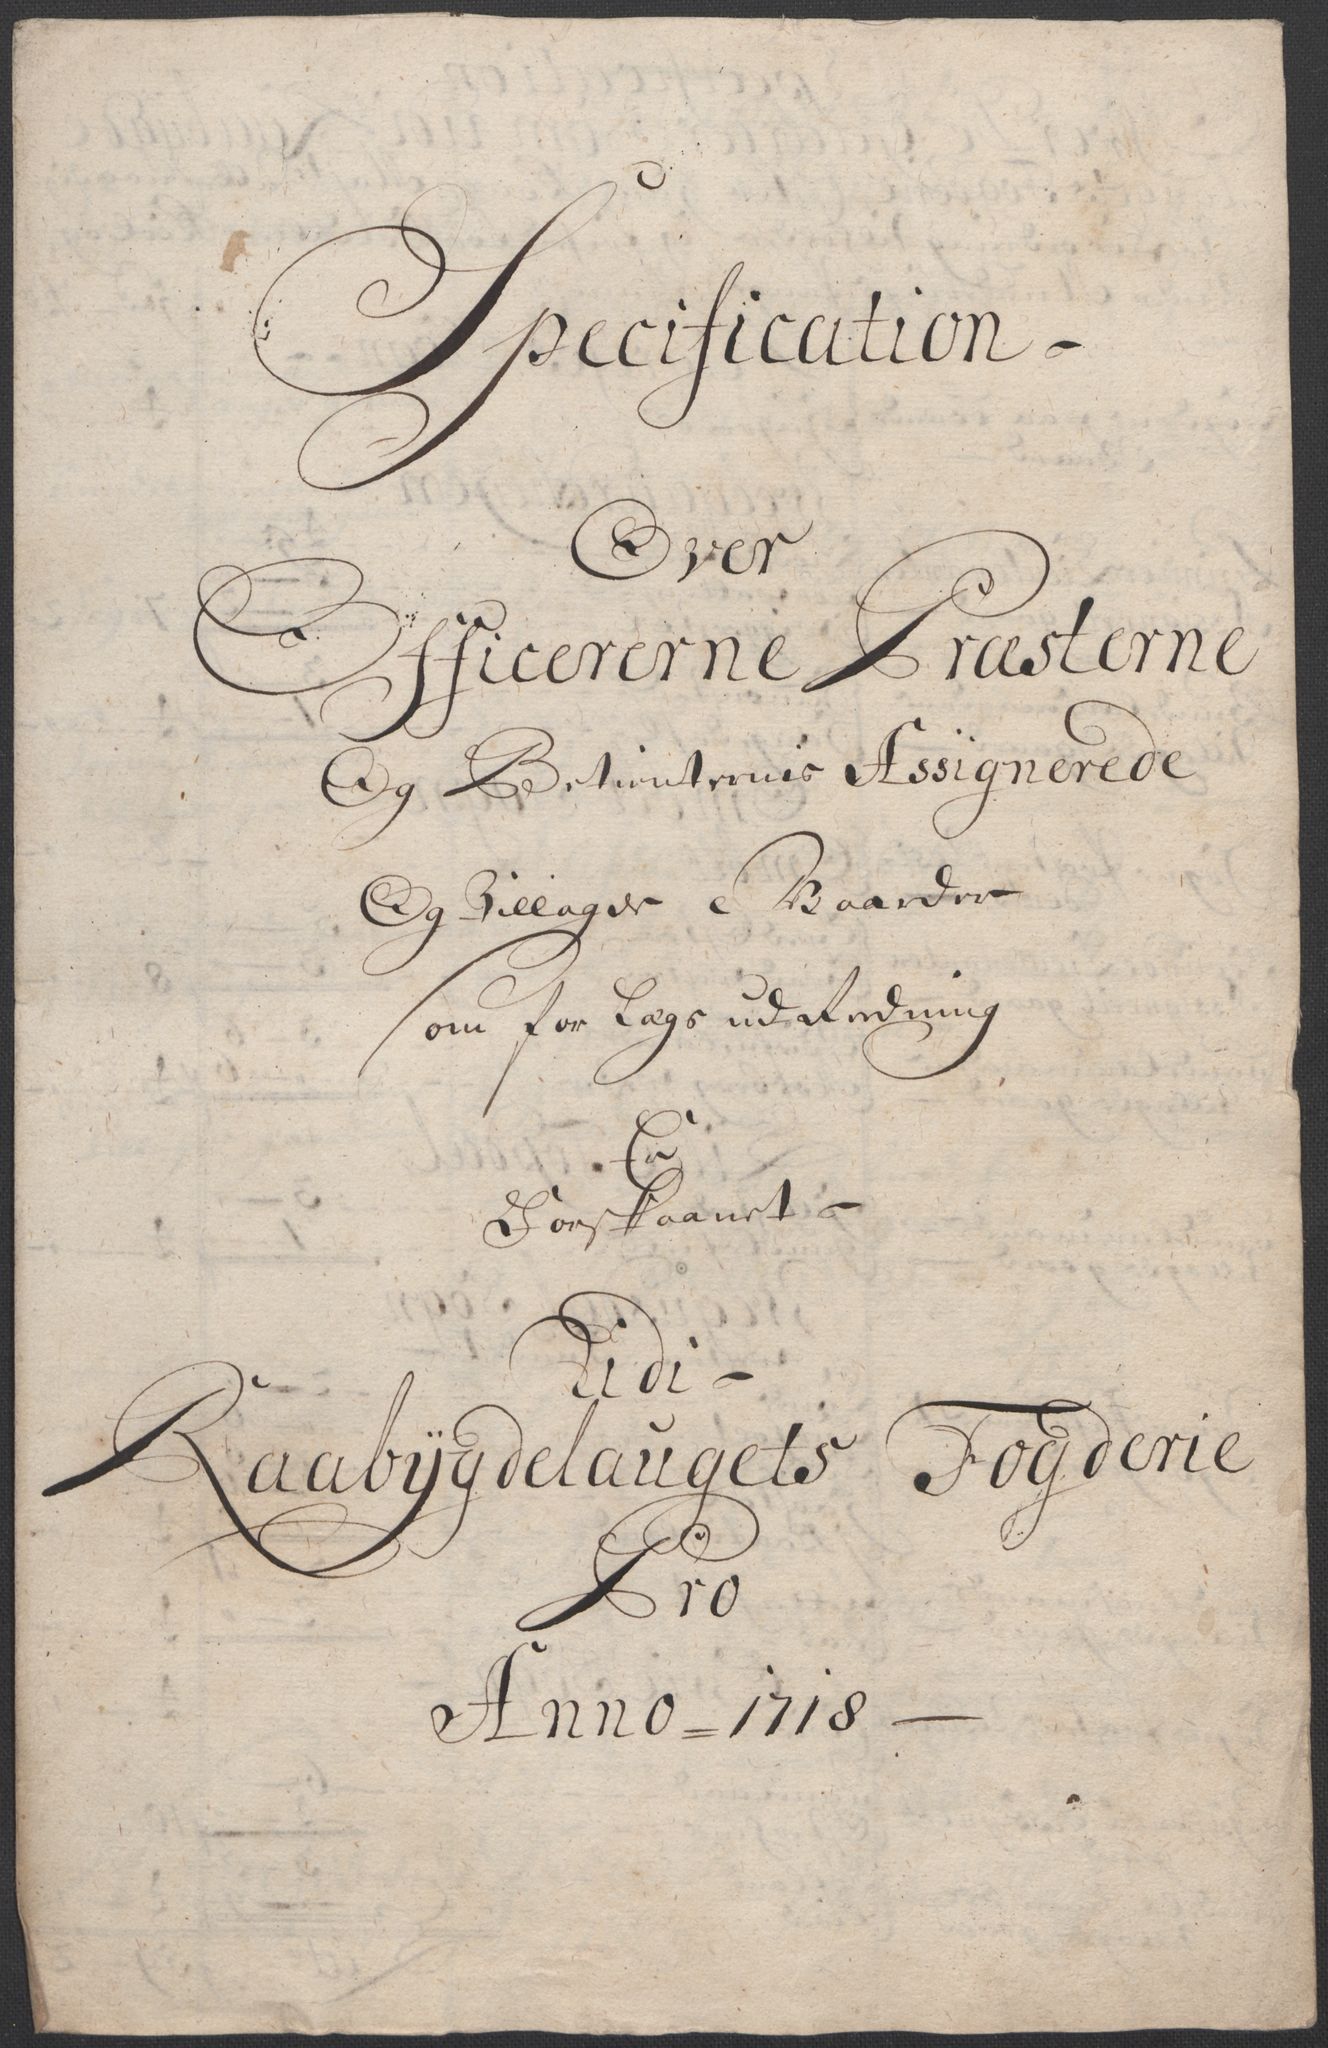 Specification
Over
Officererne Præsterne
Og Betienternis Assignerede
Og Tillagde Gaarder
som for Lægs udredning
Er
Forskaanet
Udi
Raabÿgdelaugets Fogderie
Pro
Anno 1718